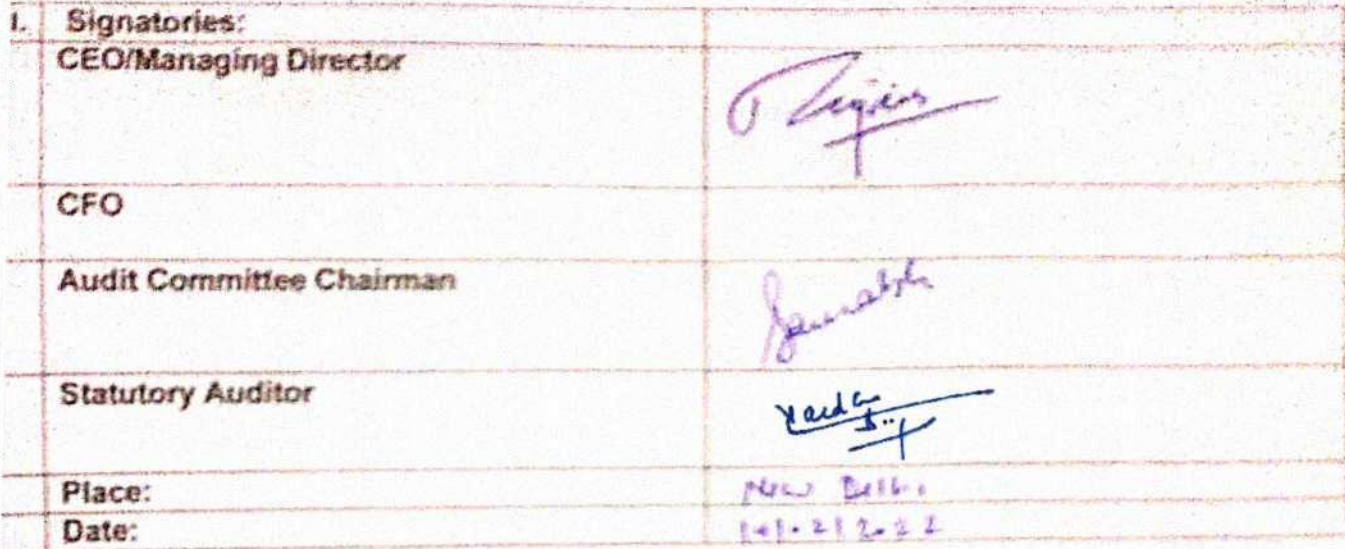 I. Signatories:
CEO/Managing Director
CFO
Audit Committee Chairman
Saurabh
Statutory Auditor
Place: New Delhi
Date: